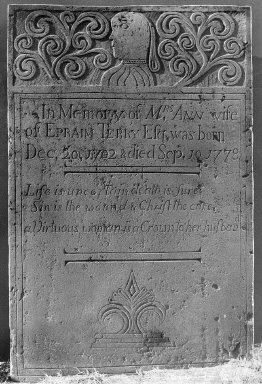 In Memory of Mrs ANN wife
of EPRAIM TERRY Esqr, was born
Dec. 20, 1702 & died Sep. 10 1778
Life is uncertain death is sure
Sin is the wound & Christ the cure
a Virtuous woman is a Crown to her husband